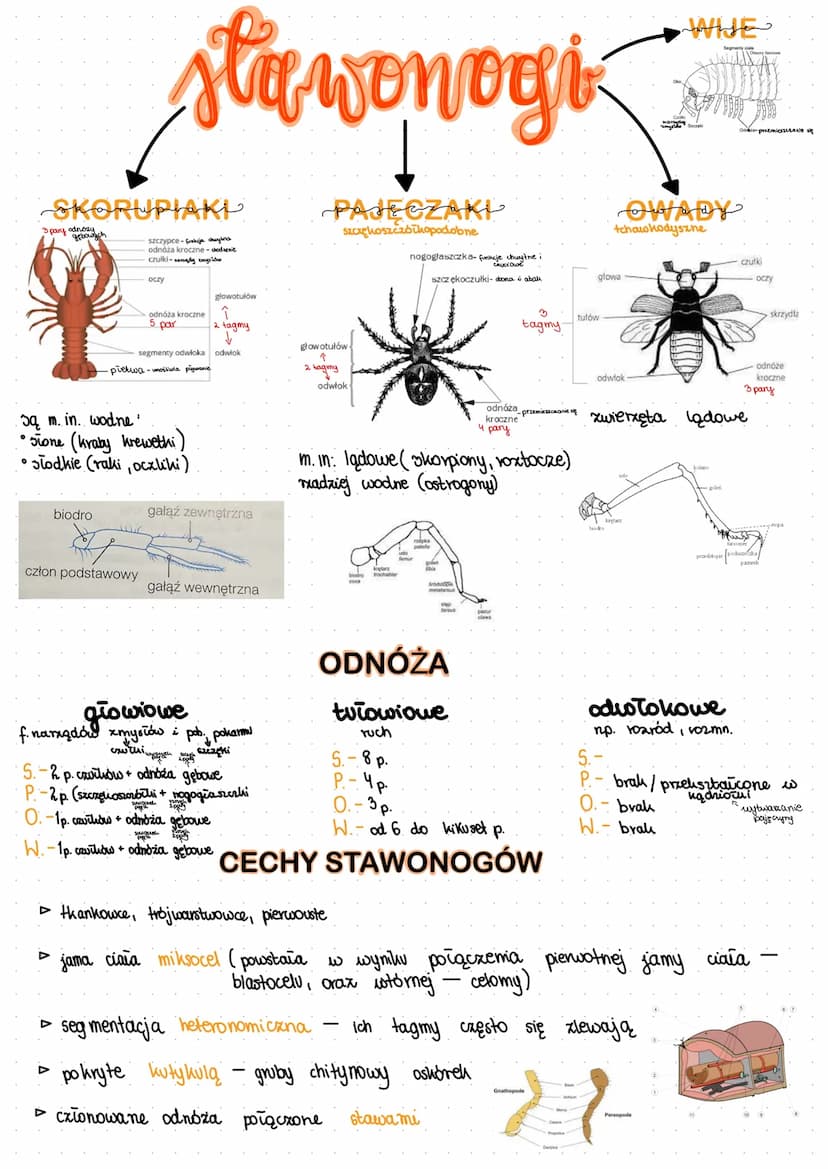 stawonogi
WIJE
Segmenty ciała
Otwory boczne
Oko
Czułki
Szczęki
Odnóża-przemieszczanie się
SKORUPIAKI
3 pary odnóży gębowych
szczypce - funkcje chwytne
odnóża kroczne - chodzenie
czułki - narządy zmysłów
oczy
głowotułów
odnóża kroczne
5 par
2 tagmy
segmenty odwłoka
odwłok
pletwa - umożliwia pływanie
są m.in. wodne:
• słone (kraby krewetki)
• słodkie (raki, oczliki)
biodro
gałąź zewnętrzna
człon podstawowy
gałąź wewnętrzna
PAJĘCZAKI
szczękoszczbłkopodobne
nogogłaszczka - funkcje chwytne i czuciowe
szczękoczułki -
głowotułów
2 tagmy
odwłok
odnóża kroczne - przemieszczanie się
4 pary
m.in: lądowe (skorpiony, roztocze)
rzadziej wodne (ostrogony)
biodro
coxa
krętarz
trochanter
udo
femur
rzepka
patella
goleń
tibia
śródstopie
metatarsus
stęp
tarsus
pazur
claws
OWADY
tchawkodyszne
czułki
głowa
oczy
3 tagmy
tułów
skrzydła
odwłok
odnóże kroczne
3 pary
zwierzęta lądowe
biodro
krętarz
udo
kolano
goleń
stopa
pazurek
ODNÓŻA
głowowe
f. narządów zmysłów i pob. pokarmu
czułki
szczęki
S. - 2 p. czułków + odnóża gębowe
P. - 2p. (szczękoczułki + nogogłaszczki
O. - 1p. czułków + odnóża gębowe
W. - 1p. czułków + odnóża gębowe
tułowiowe
ruch
S. - 8 p.
P. - 4 p.
O. - 3 p.
W. - od 6 do kilkuset p.
odwłokowe
np. rozród, rozmn.
S. -
P. - brak / przekształcone w kądziołki
wytwarzanie pajęczyny
O. - brak
W. - brak
CECHY STAWONOGÓW
▷ tkankowce, trójwarstwowce, pierwouste
▷ jama ciała miksocel (powstała w wyniku połączenia pierwotnej jamy ciała —
blastocelu, oraz wtórnej — celomy)
▷ segmentacja heteronomiczna — ich tagmy często się zlewają
▷ pokryte kutykulą — gruby chitynowy oskórek
▷ członowane odnóża połączone stawami
Gnathopods
Pereopods
Basis
Ischium
Merus
Carpus
Propodus
Dactylus